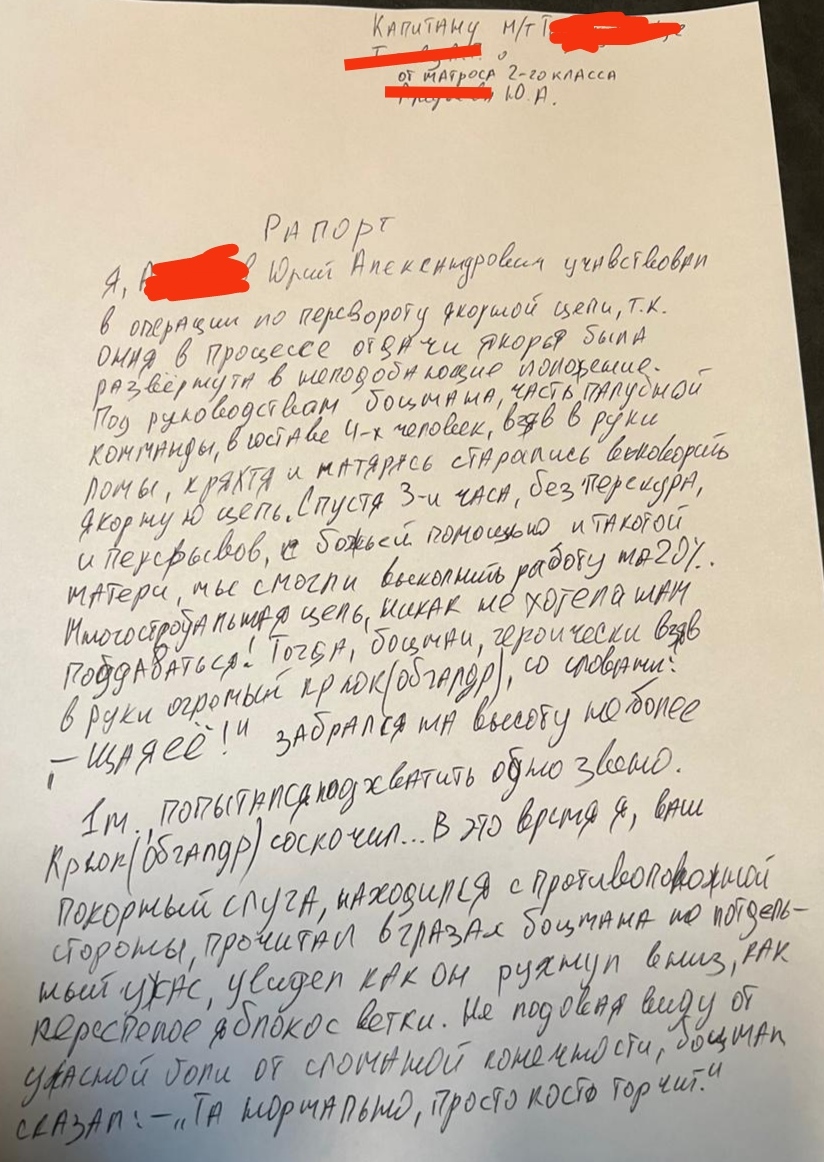 Капитану м/т Т
от матроса 2-го класса
Ю.А.
Рапорт
Я, А в Юрий Александрович учавствовал
в операции по перевороту якорной цепи, т.к.
оная в процессе отдачи якоря была
развёрнута в неподобающие положение.
Под руководствам боцмана, часть палубной
команды, в составе 4-х человек, взяв в руки
ломы, кряхтя и матярясь старались выковорить
якорную цепь. Спустя 3-и часа, без перекура,
и перерывов, с божьей помощью и такой
матери, мы смогли выполнить работу на 20%.
Многострадальная цепь, никак не хотела нам
поддаваться! Тогда, боцман, героически взяв
в руки огромый крюк (обгалдр), со словами:
„– Щаяеё!" забрался на высоту не более
1м., попытался подхватить одно звено.
Крюк (обгалдр) соскочил... В это время я, ваш
покорный слуга, находился с противоположной
стороны, прочитал в глазах боцмана не поддель-
ный ужас, увидел как он рухнул вниз, как
переспелое яблоко с ветки. Не подовая виду от
ужасной боли от сломаной конечности, боцман
сказал: – „Та нормально, просто кость торчит."